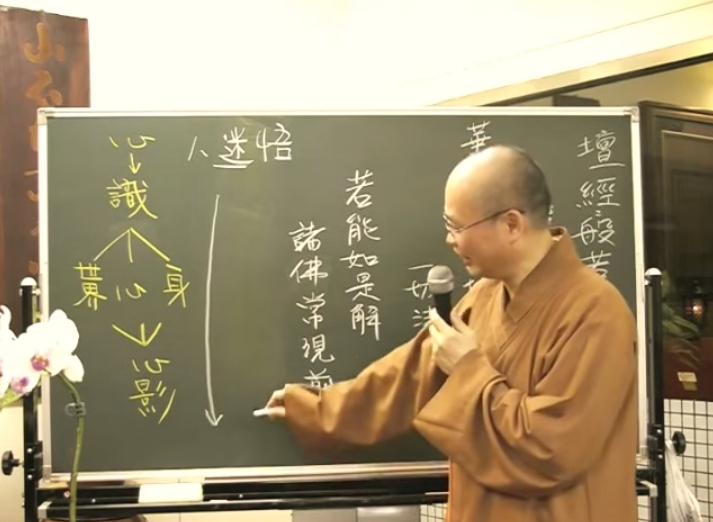 壇經般若
華
一切法
若能如是解
諸佛常現前
人迷悟
心
識
身心
心影